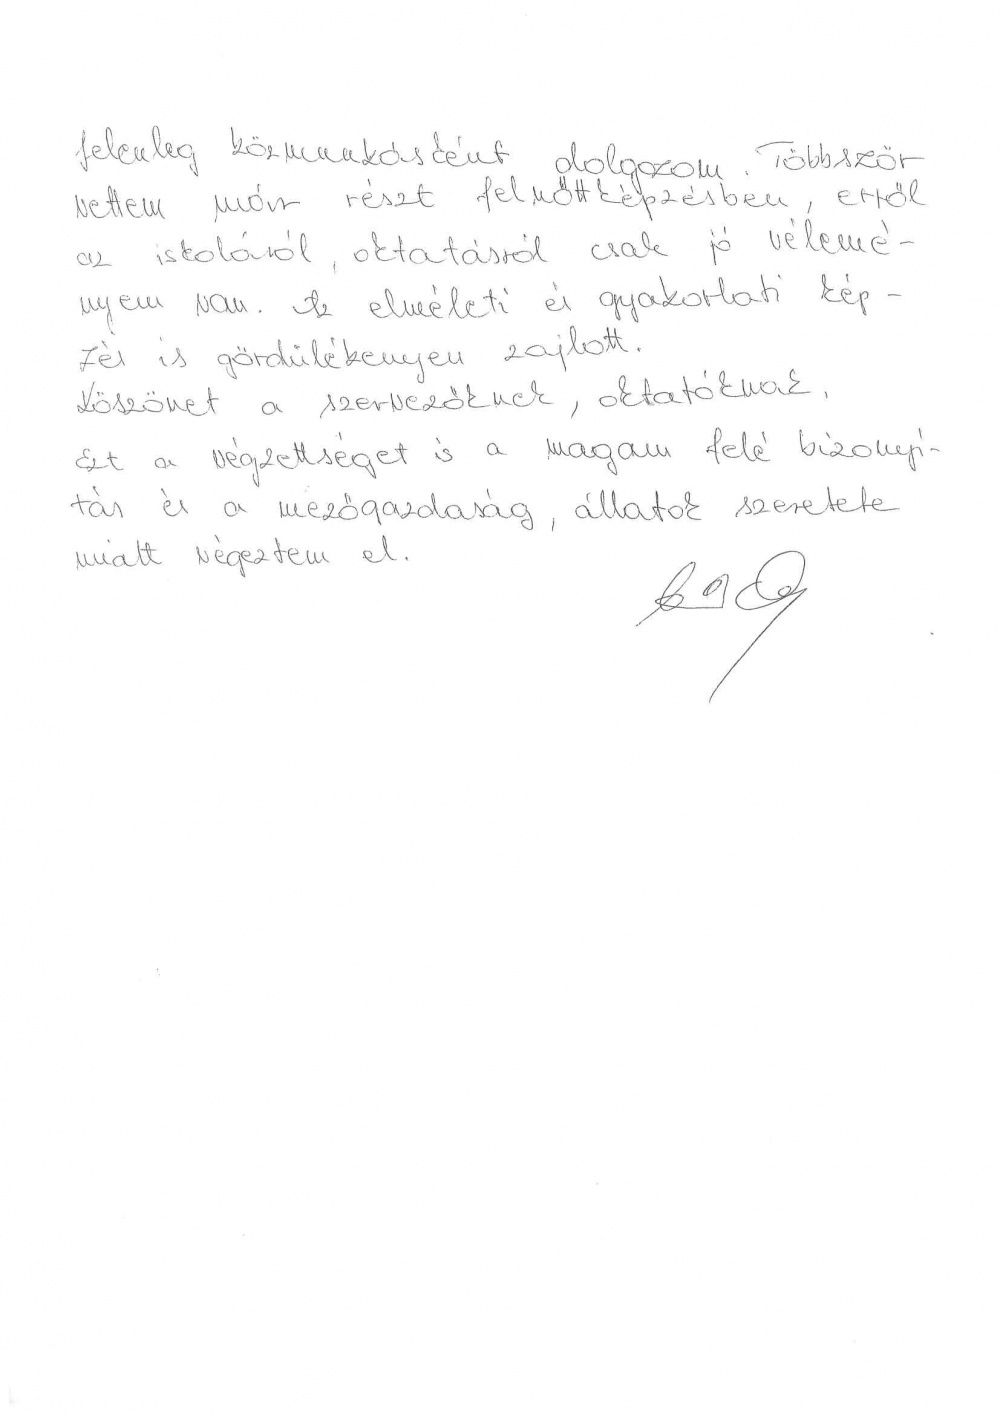 Jelenleg közmunkásként dolgozom. Többször
vettem már részt felnőttképzésben, erről
az iskoláról, oktatásról csak jó vélemé-
nyem van. Az elméleti és gyakorlati kép-
zés is gördülékenyen zajlott.
Köszönet a szervezőknek, oktatóknak.
Ezt a végzettséget is a magam felé bizonyí-
tás és a mezőgazdaság, állatok szeretete
miatt végeztem el.